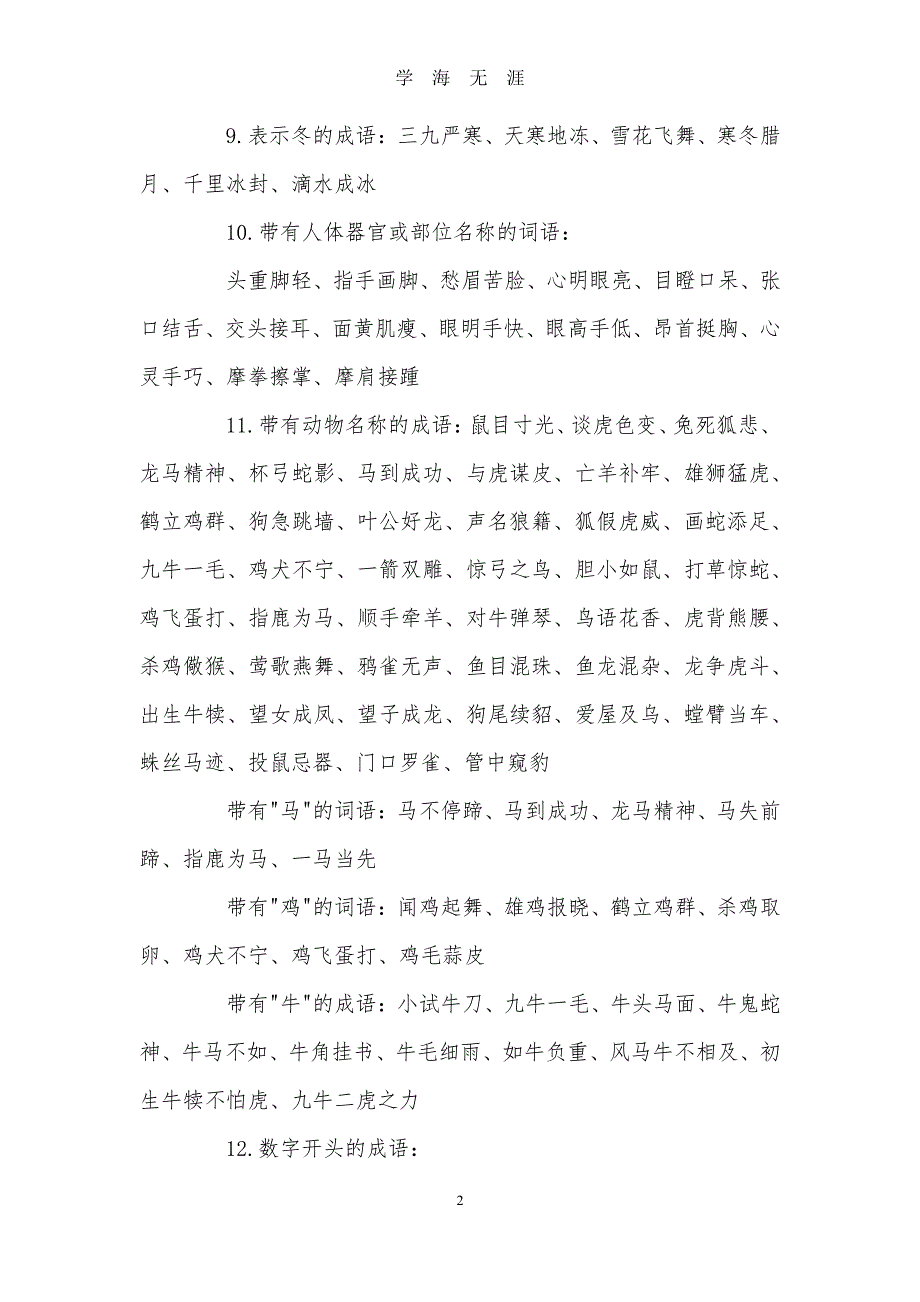 学 海 无 涯
9.表示冬的成语：三九严寒、天寒地冻、雪花飞舞、寒冬腊
月、千里冰封、滴水成冰
10.带有人体器官或部位名称的词语：
头重脚轻、指手画脚、愁眉苦脸、心明眼亮、目瞪口呆、张
口结舌、交头接耳、面黄肌瘦、眼明手快、眼高手低、昂首挺胸、心
灵手巧、摩拳擦掌、摩肩接踵
11.带有动物名称的成语：鼠目寸光、谈虎色变、兔死狐悲、
龙马精神、杯弓蛇影、马到成功、与虎谋皮、亡羊补牢、雄狮猛虎、
鹤立鸡群、狗急跳墙、叶公好龙、声名狼籍、狐假虎威、画蛇添足、
九牛一毛、鸡犬不宁、一箭双雕、惊弓之鸟、胆小如鼠、打草惊蛇、
鸡飞蛋打、指鹿为马、顺手牵羊、对牛弹琴、鸟语花香、虎背熊腰、
杀鸡儆猴、莺歌燕舞、鸦雀无声、鱼目混珠、鱼龙混杂、龙争虎斗、
出生牛犊、望女成凤、望子成龙、狗尾续貂、爱屋及乌、螳臂当车、
蛛丝马迹、投鼠忌器、门口罗雀、管中窥豹
带有"马"的词语：马不停蹄、马到成功、龙马精神、马失前
蹄、指鹿为马、一马当先
带有"鸡"的词语：闻鸡起舞、雄鸡报晓、鹤立鸡群、杀鸡取
卵、鸡犬不宁、鸡飞蛋打、鸡毛蒜皮
带有"牛"的成语：小试牛刀、九牛一毛、牛头马面、牛鬼蛇
神、牛马不如、牛角挂书、牛毛细雨、如牛负重、风马牛不相及、初
生牛犊不怕虎、九牛二虎之力
12.数字开头的成语：
2